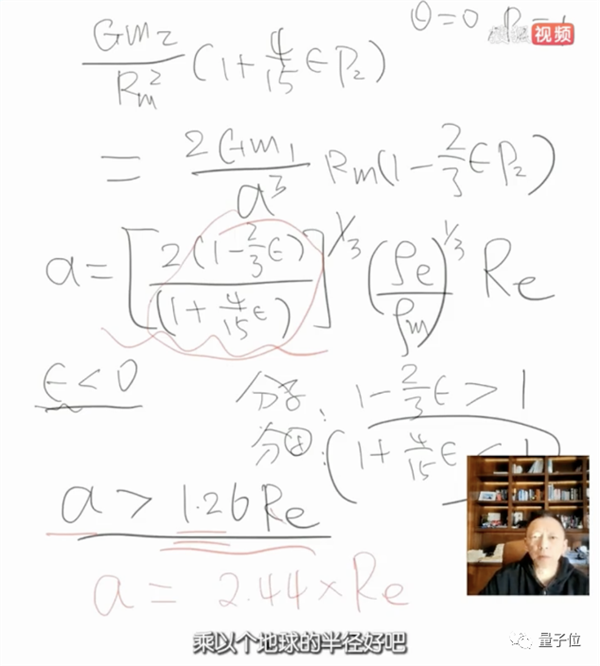 θ=0 P₂=1
视频
Gm₂/Rm² (1+4/15 ϵP₂)
= 2Gm₁/a³ Rm(1-2/3 ϵP₂)
a=[2(1-2/3 ϵ)/(1+4/15 ϵ)]^1/3 (ρe/ρm)^1/3 Re
ϵ<0
分子: 1-2/3 ϵ>1
分母: (1+4/15 ϵ<1)
a>1.26Re
a=2.44×Re
乘以个地球的半径好吧
量子位